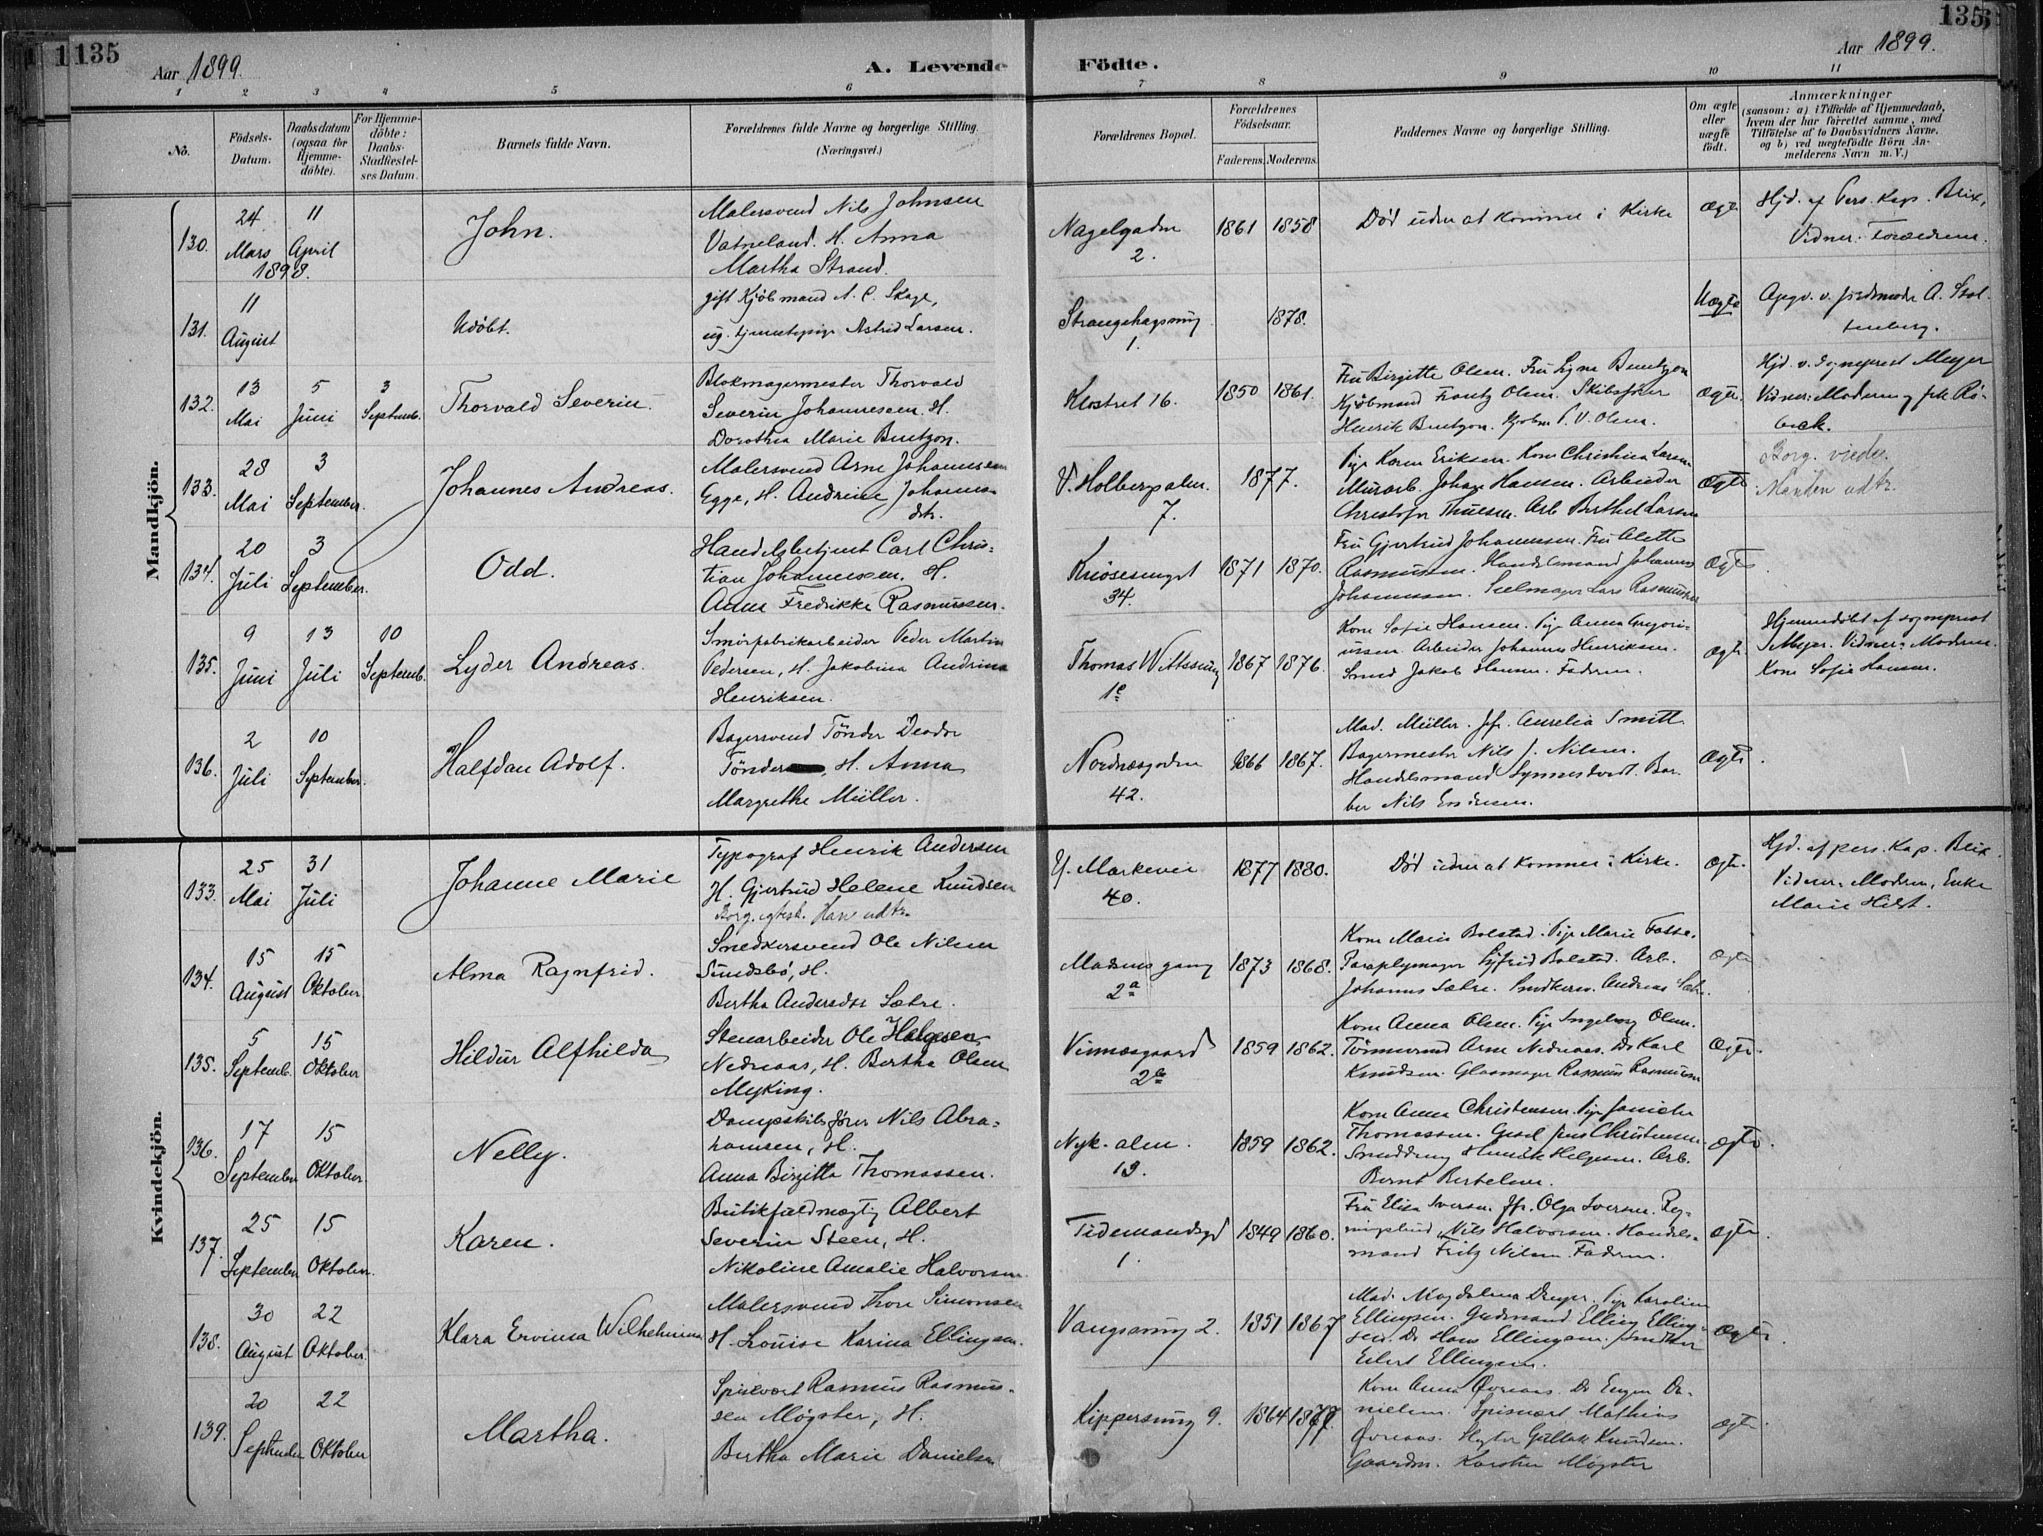 135
Aar 1899.
A. Levende Födte.
Aar 1899.
135
1 2 3 4 5 6 7 8 9 10 11
No.
Födsels-
Datum.
Daabsdatum
(ogsaa for
Hjemme-
döbte).
For Hjemme-
döbte:
Daabs-
Stadfæstel-
ses Datum.
Barnets fulde Navn.
Forældrenes fulde Navne og borgerlige Stilling.
(Næringsvei.)
Forældrenes Bopæl.
Forældrenes
Födselsaar.
Faderens. Moderens.
Faddernes Navne og borgerlige Stilling.
Om ægte
eller
uægte
födt.
Anmærkninger
(saasom: a) i Tilfælde af Hjemmedaab,
hvem der har forrettet samme, med
Tilföielse af to Daabsvidners Navne,
og b) ved uægtefödte Börn An-
melderens Navn m. V.)
Mandkjön.
130.
24 Mars 1898.
11 April
John.
Malersvend Nils Johnsen
Vatneland. H. Anna
Martha Strand.
Nagelgaden
2.
1861 1858
Död uden at komme i Kirke
Ægte
Hjd. af Pers. Kap. Brix,
Vidner: Forældrene.
131.
11 August
Udöbt.
gift Kjöbmand A. C. Skage,
ug. tjenestepige Astrid Larsen.
Strangehagen
1.
1878.
Uægte
Opgv. v. jordmoder A. Stol-
tenberg.
132.
13 Mai
5 Juni
3 Septemb.
Thorvald Severin.
Blokmagermester Thorvald
Severin Johannesen H.
Dorothea Marie Bentzon.
Klostret 16.
1850 1861.
Fru Birgitte Olsen. Fru Signe Bentzon
Kjöbmand Frantz Olsen. Skibsförer
Henrik Bentzon. Kjöbm. P. V. Olsen.
Ægte.
Hjd. v. sognepræst Meyer
Vidner: Moderen og frk Rö-
beck.
133.
28 Mai
3 September.
Johannes Andreas.
Malersvend Arne Johannesen
Egge, H. Andrine Johannes-
dtr.
V. Holbergsalm.
7.
1877.
Pige Karen Eriksen. Kone Christina Larsen
Murarb. Johan Hansen. Arbeider
Christofer Thuesen. Arb. Berthel Larsen
Ægte
Borg. viede.
Manden udtr.
134.
20 Juli
3 September.
Odd.
Handelsbetjent Carl Chris-
tian Johannessen. H.
Anna Fredrikke Rasmussen.
Knösesmuget
34.
1871 1870.
Fru Gjertrud Johannesen. Fru Alette
Rasmussen. Handelsmand Johannes
Johannesen. Seilmager Lars Rasmussen
Ægte.
135.
9 Juni
13 Juli
10 Septemb.
Lyder Andreas.
Smörfabrikarbeider Peder Martin
Pedersen, H. Jakobina Andrina
Henriksen.
Thomas Wittssmug
1c
1867 1876.
Kone Sofie Hansen. Pige Anna Gregori-
ussen. Arbeider Johannes Henriksen.
Smed Jakob Hansen. Faderen.
Ægte.
Hjemmedöbt af sognepræst
Meyer. Vidner: Moderen.
Kone Sofie Hansen.
136.
2 Juli
10 September.
Halfdan Adolf.
Bagersvend Tönder Deodor
Tönder, H. Anna
Margrethe Müller.
Nordnæsgaden
42.
1866 1867.
Mad. Müller. Jfr. Aurelia Smitt
Bagermester Nils J. Nilsen.
Handelsmand Synnestvedt. Bar-
ber Nils Evensen.
Ægte.
Kvindekjön.
133.
25 Mai
31 Juli
Johanne Marie
Typograf Henrik Andersen
H. Gjertrud Helene Knudsen
Borg. egtesk. Han udtr.
Y. Markevei
40.
1877 1880.
Död uden at komme i Kirke.
Ægte.
Hjd. af pers. Kap. Brix.
Vidner: Moderen, Enke
Marie Hilst.
134.
15 August
15 Oktober
Alma Ragnfrid.
Snedkersvend Ole Nilsen
Sundsbö, H.
Bertha Andersdtr Sætre.
Madamsgang
2a
1873 1868.
Kone Marie Bolstad. Pige Marie Fosse.
Paraplymager Sjfrid Bolstad. Arb.
Johannes Sætre. Snedkersv. Andreas Sætre.
Ægte
135.
5 Septemb.
15 Oktober
Hildur Alfhilda
Stenarbeider Ole Helgesen
Nedreaas, H. Bertha Olsen
Myking.
Vinnæsgaard
2b
1859 1862.
Kone Anna Olsen. Pige Ingeborg Olsen.
Tömmermand Arne Nedreaas. Do Karl
Knudsen. Glasmager Rasmus Rasmussen
Ægte.
136.
17 September
15 Oktober.
Nelly.
Dampskibsförer Nils Abra-
hamsen, H.
Anna Birgitta Thomassen.
Nyk. alm.
19.
1859 1862.
Kone Anna Christensen. Pige Janicke
Thomassen. Gesel Jens Christensen.
Smeddreng Henrik Helgesen. Arb.
Bernt Bertelsen.
Ægte.
137.
25 September
15 Oktober.
Karen.
Butikfuldmægtig Albert
Severin Steen, H.
Nikoline Amalie Halvorsen
Tidemandsgd
1.
1849 1860.
Fru Elisa Iversen. Jfr. Olga Iversen. Reg-
ningsbud Nils Halvorsen. Handels-
mand Fritz Nilsen. Faderen.
Ægte.
138.
30 August
22 Oktober.
Klara Ervina Wilhelmina
Malersvend Thore Simonsen
H. Louise Karina Ellingsen.
Vaugsmug 2.
1851 1867
Mad. Magdalena Dreyer. Pige Karoline
Ellingsen. Gudmand Elling Elling-
sen. Do Hans Ellingsen. Snedker
Eilert Ellingsen.
Ægte.
139.
20 September
22 Oktober
Martha.
Spisevært Rasmus Rasmus-
sen Mögster, H.
Bertha Marie Danielsen
Kippersmug 9.
1864 1877.
Kone Anna Övreaas. Do Eugen Da-
nielsen. Spisevært Mathias
Övreaas. Gullak Knudsen.
Gaardm. Karsten Mögster
Ægte